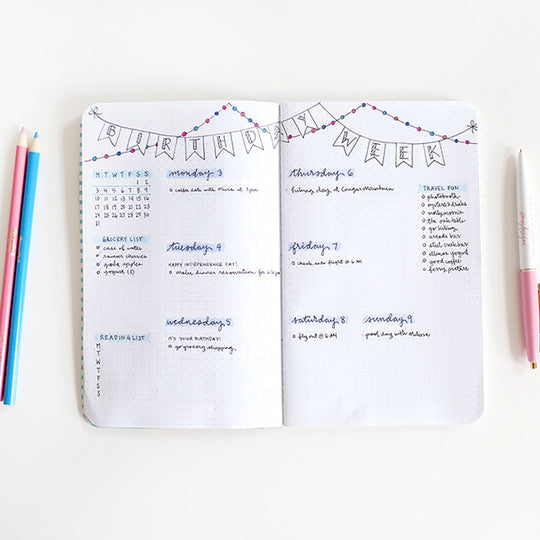 BIRTHDAY WEEK
M T W T F S S
1 2
3 4 5 6 7 8 9
10 11 12 13 14 15 16
17 18 19 20 21 22 23
24 25 26 27 28 29 30
31
GROCERY LIST
case of water
rainier cherries
gala apples
yogurt (8)
READING LIST
M
T
W
T
F
S
S
monday, 3
coffee date with at 3pm
tuesday, 4
HAPPY INDEPENDENCE DAY!
make dinner reservation for
wednesday, 5
IT'S YOUR BIRTHDAY!
go grocery shopping
thursday, 6
hiking day at Cougar Mountain
friday, 7
check into flight @ 6 AM
saturday, 8
fly out @ 6 AM
sunday, 9
pool day with Melissa
TRAVEL FUN
photobooth
oysters & drinks
molly moon's
the oak table
go hiking
arcade bar
steel creek bar
ellenos yogurt
good coffee
ferry picture